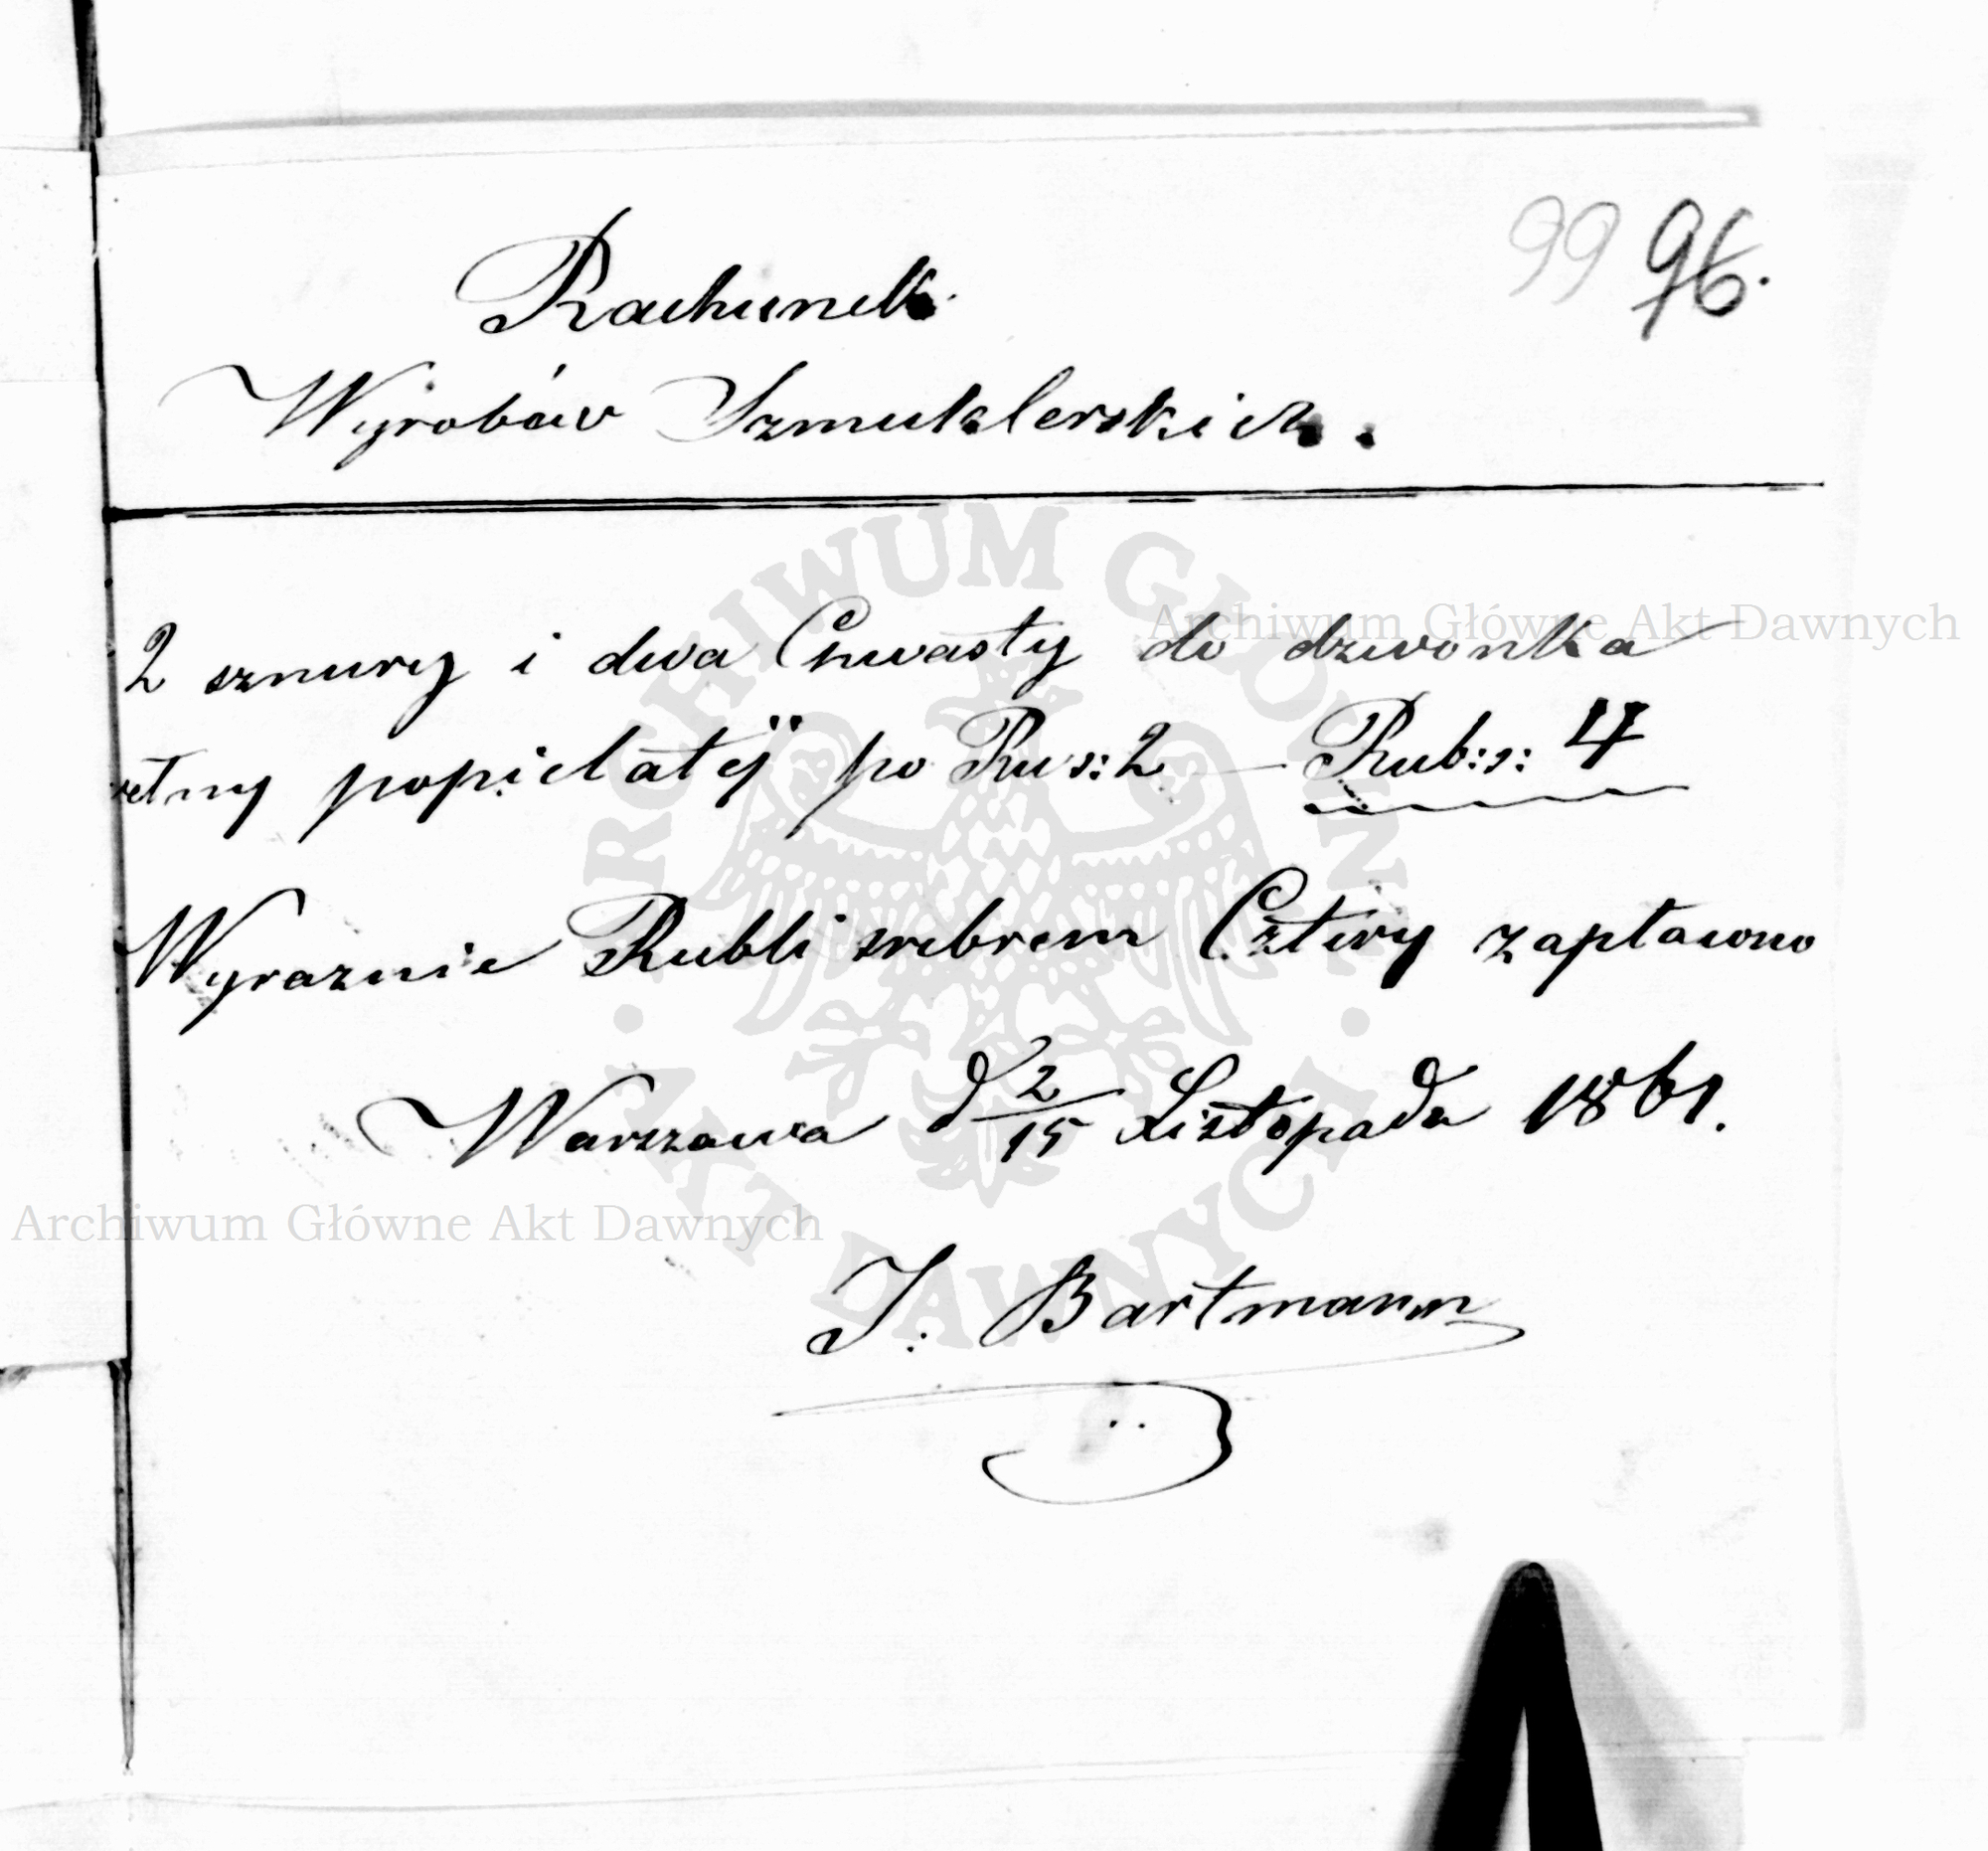 99 96.
Rachunek
Wyrobów Szmuklerskich.
2 sznury i dwa Chwasty do dzwonka
ełny popielatéj po Ru s: 2 — Rub: s: 4
Wyraznie Rubli srebrem Cztery zapłacono
Warszawa d 2/15 Listopada 1861.
J. Bartmann
ARCHIWUM GŁÓWNE AKT DAWNYCH
Archiwum Główne Akt Dawnych
Archiwum Główne Akt Dawnych